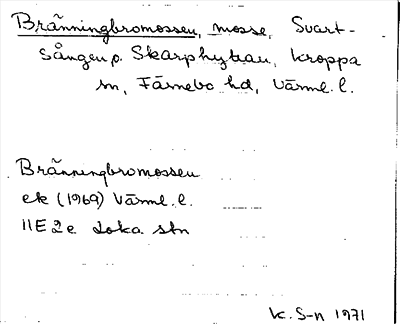 Bränningbromossen, mosse, Svart-
sången o. Skarphyttan, Kroppa
sn, Färnebo hd, Värml. l.
Bränningbromossen
ek (1969) Värml. l.
11E 2e Loka stn
K. S-n 1971